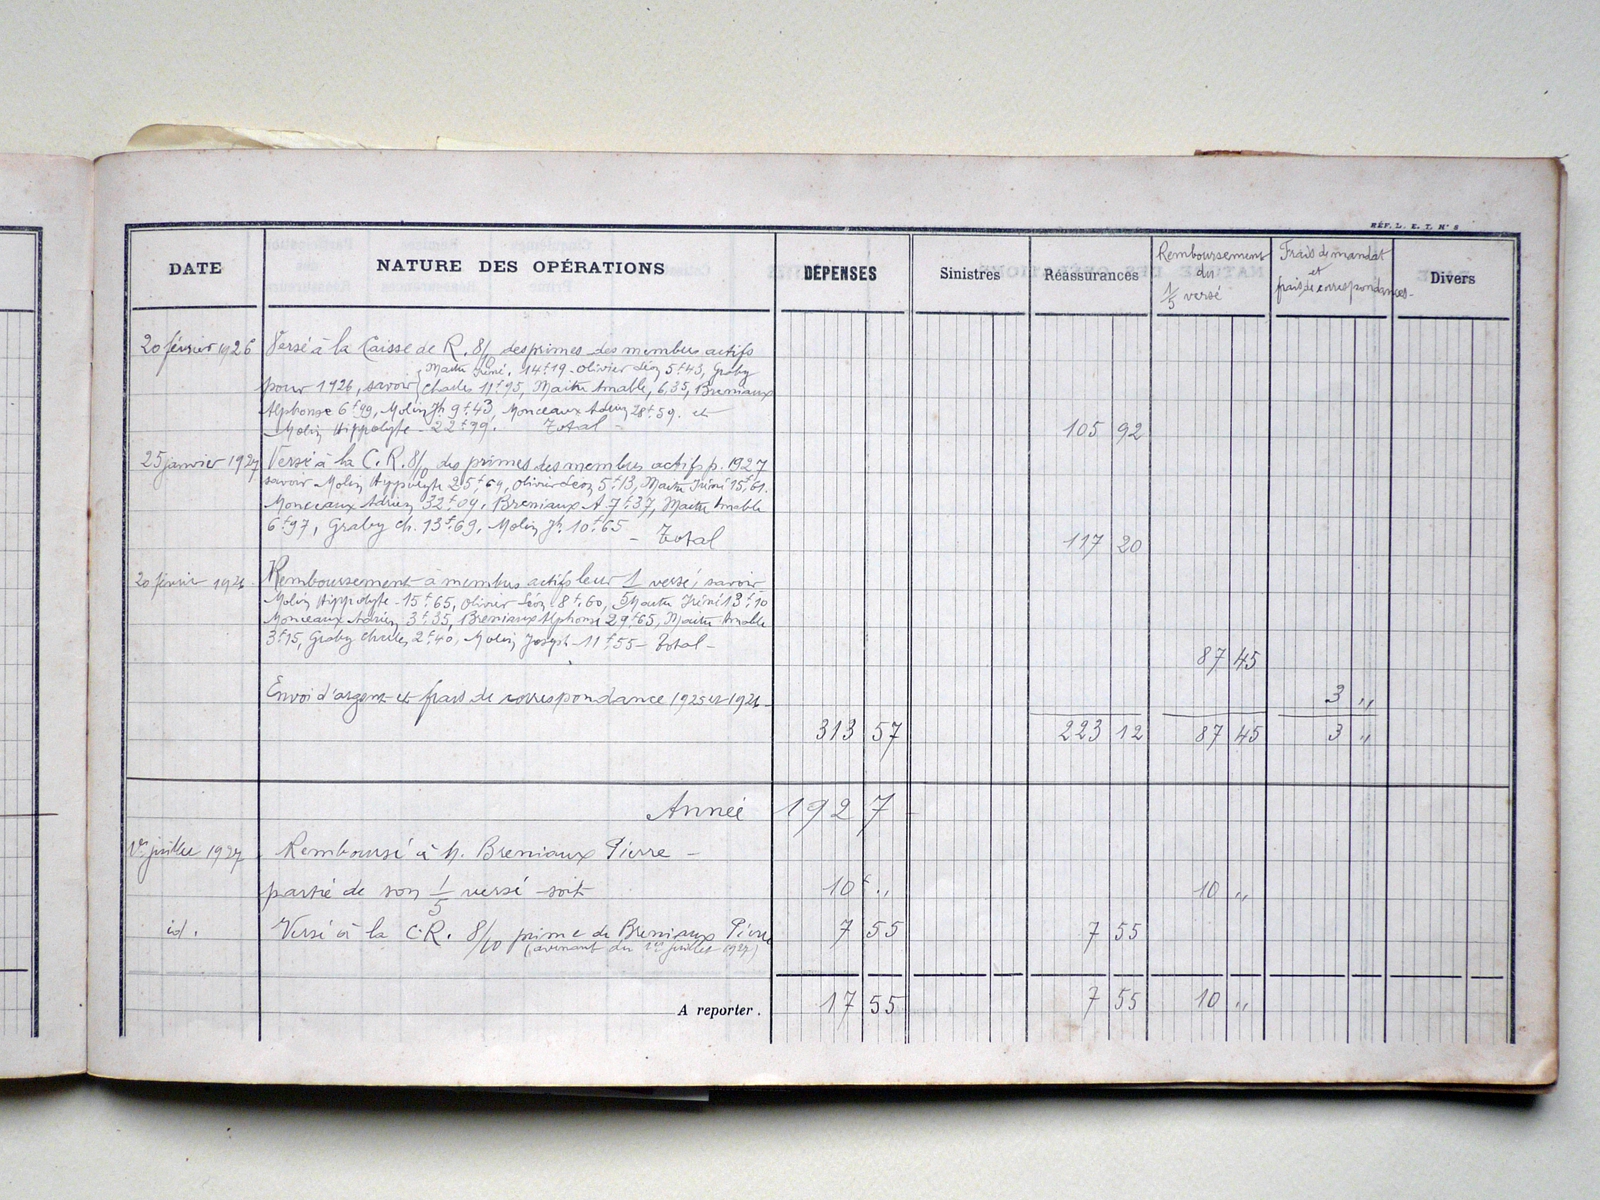 RÉF. L. E. I. N° 8
DATE NATURE DES OPÉRATIONS DÉPENSES Sinistres Réassurances Remboursement du 1/5 versé Frais de mandat et frais de correspondances Divers
20 février 1926 Versé à la Caisse de R. 8/10 des primes des membres actifs
Maitre Iréné, 14f19 - Olivier Léon 5f43, Graby
pour 1926, savoir Charles 11f95, Maitre Amable, 6,35, Breniaux
Alphonse 6f99, Molin Jh 9f43, Monceaux Adrien 28f59. et
Molin Hippolyte - 22f99. Total - 105 92
25 janvier 1927 Versé à la C. R. 8/10 des primes des membres actifs p. 1927
savoir Molin Hippolyte 25f64, Olivier Léon 5f13, Maitre Iréné 15f61.
Monceaux Adrien 32f04, Breniaux A. 7f37, Maitre Amable
6f97, Graby Ch. 13f69, Molin Jh 10f65 - Total 117 20
20 février 1926 Remboursement à membres actifs leur 1/5 versé, savoir
Molin Hippolyte - 15f65, Olivier Léon 8f60, Maitre Iréné 13f10
Monceaux Adrien 3f35, Breniaux Alphonse 29f65, Maitre Amable
3f15, Graby Charles 2f40, Molin Joseph - 11f55 - Total - 87 45
Envoi d'argent et frais de correspondance 1925 et 1926 - 3 "
313 57 223 12 87 45 3 "
Année 1927 -
1er juillet 1927 Remboursé à M. Breniaux Pierre -
partie de son 1/5 versé soit 10f " 10 "
id. Versé à la C.R. 8/10 prime de Breniaux Pierre 7 55 7 55
(avenant du 1er juillet 1927)
A reporter. 17 55 7 55 10 "